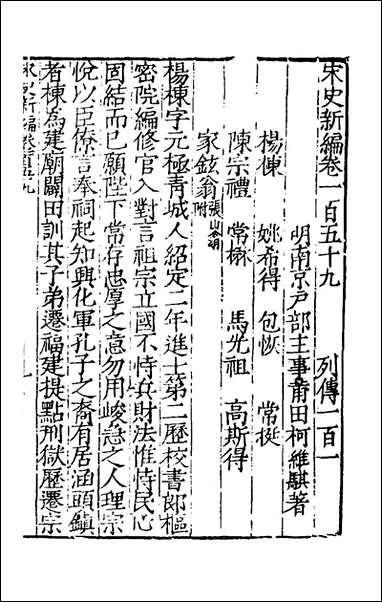 宋史新編卷一百五十九　列傳一百一
明南京戶部主事莆田柯維騏著
楊棟　姚希得　包恢　常挺
陳宗禮　常楙　馬光祖　高斯得
家鉉翁　張山翁附
楊棟字元極青城人紹定二年進士第二歷校書郎樞
密院編修官入對言祖宗立國不恃兵財法惟恃民心
固結而已願陛下常存忠厚之意勿用峻急之人理宗
悅以臣僚言奉祠起知興化軍孔子之裔有居涵頭鎮
者棟為建廟闢田訓其子弟遷福建提點刑獄歷遷宗